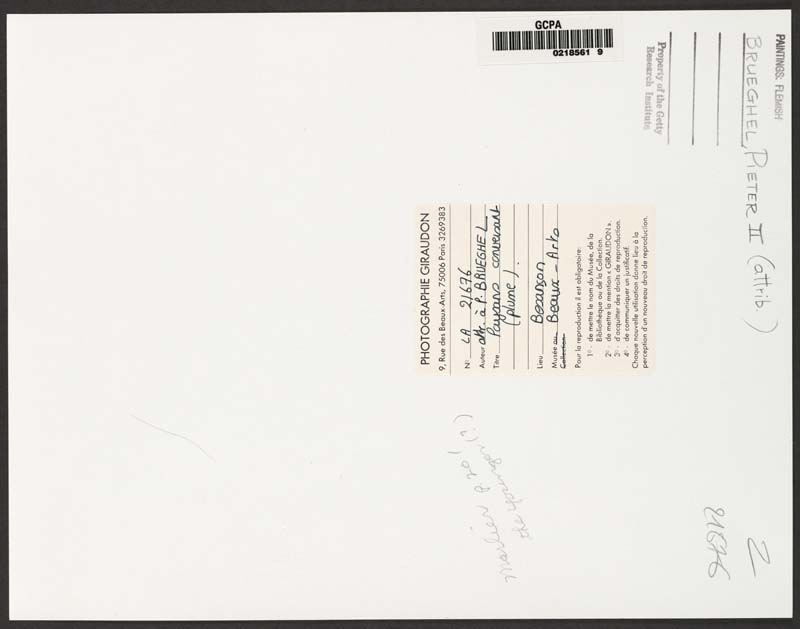 GCPA
0218561 9
Property of the Getty
Research Institute
PAINTINGS: FLEMISH
BRUEGHEL, PIETER II (attrib.)
PHOTOGRAPHIE GIRAUDON
9, Rue des Beaux-Arts, 75006 Paris 3269383
N° LA 21676
Auteur att. à P. BRUEGHEL
Titre Paysans conversant
(plume).
Lieu Besançon
Musée ou Beaux-Arts
Collection
Pour la reproduction il est obligatoire:
1° - de mettre le nom du Musée, de la
Bibliothèque ou de la Collection.
2° - de mettre la mention « GIRAUDON ».
3° - d'acquitter des droits de reproduction.
4° - de communiquer un justificatif.
Chaque nouvelle utilisation donne lieu à la
perception d'un nouveau droit de reproduction.
Marlier
the younger (?)
21676
2